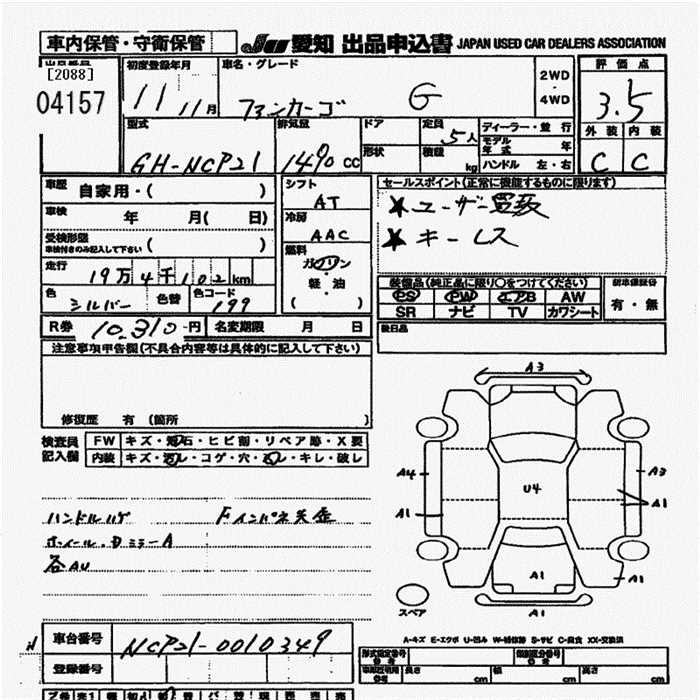 車内保管・守衛保管
JU 愛知 出品申込書 JAPAN USED CAR DEALERS ASSOCIATION
出品番号
[2088]
04157
初度登録年月
11 11月
車名・グレード
ファンカーゴ G
2WD
・
4WD
評価点
3.5
外装 内装
C C
型式
GH-NCP21
排気量
1490 CC
ドア
形状
定員 5人
積載 kg
ディーラー・並行
モデル年式 年
ハンドル 左・右
車歴 自家用・( )
車検 年 月( 日)
受検形態
車検付きのみ記入して下さい ( )
走行 19万4千102km
色 シルバー 色替 色コード 199
シフト
AT
冷房
AAC
燃料
ガソリン
軽・油
( )
セールスポイント(正常に機能するものに限ります)
★ユーザー買取
★キーレス
装備品(純正品に限り○をつけてください)
PS PW エアB AW
SR ナビ TV カワシート
新車保証書
有・無
後日品
R券 10,310-円 名変期限 月 日
注意事項申告欄(不具合内容等は具体的に記入して下さい)
修復歴 有 (箇所 )
検査員
記入欄
FW キズ・飛石・ヒビ割・リペア跡・X要
内装 キズ・汚レ・コゲ・穴・スレ・キレ・破レ
ハンドルハゲ
ホイール・ドミラーA
各AU
A3
A4
A3
U4
A1
A1
A1
A1
A1
スペア
A-キズ E-エクボ U-凹ミ W-補修跡 S-サビ C-腐食 XX-交換済
車台番号 NCP21-0010349
登録番号
型式指定番号
類別区分番号
長さ cm 幅 cm 高さ cm